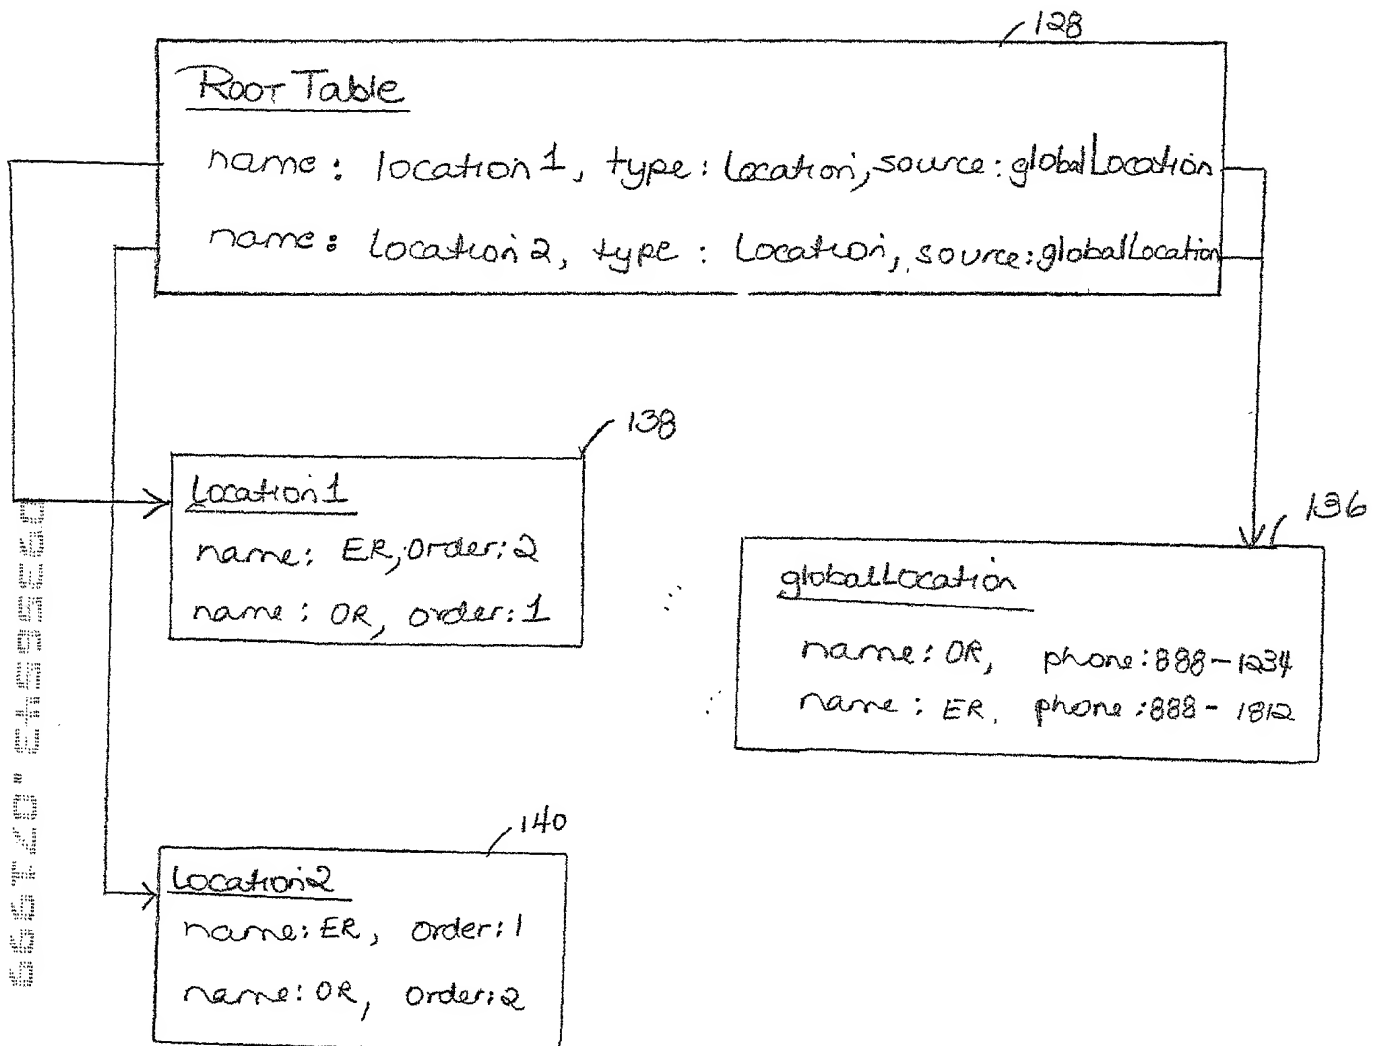 128
Root Table
name: location1, type: Location, source: globalLocation
name: location2, type: Location, source: globalLocation
138
Location1
name: ER, Order: 2
name: OR, order: 1
136
globalLocation
name: OR, phone: 888-1234
name: ER. phone: 888-1812
140
Location2
name: ER, order: 1
name: OR, order: 2